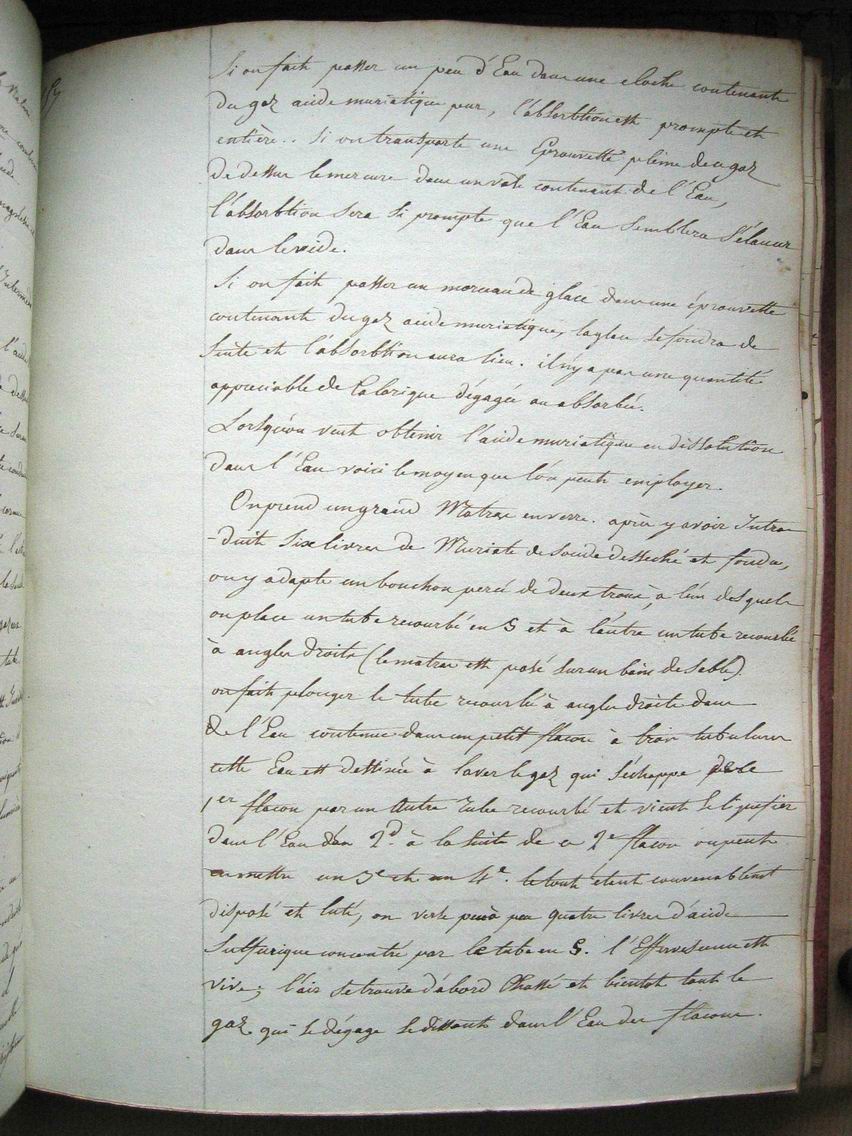 Si on fait passer un peu d'Eau dans une cloche contenante
du gaz acide muriatique pur, l'absorbtion est prompte et
entière.. Si on transporte une Eprouvette pleine de ce gaz
de dessus le mercure dans un vase contenant de l'Eau,
l'absorbtion sera si prompte que l'Eau semblera s'élancer
dans le vide.
Si on fait passer un morceau de glace dans une éprouvette
contenant du gaz acide muriatique, la glace se fondra de
suite et l'absorbtion aura lieu. il n'y a pas une quantité
appreciable de Calorique dégagée ou absorbée.
Lorsqu'on veut obtenir l'acide muriatique en dissolution
dans l'Eau voici le moyen que l'on peut employer.
On prend un grand Matras en verre. après y avoir Intro-
-duit Six livres de Muriate de soude desseché et fondu,
on y adapte un bouchon percé de deux trous, à l'un desquels
on place un tube recourbé en S et à l'autre un tube recourbé
à angles droits (le matras est posé sur un bain de sable)
on fait plonger le tube recourbé à angles droits dans
de l'Eau contenue dans un petit flacon à trois tubulures
cette Eau est destinée à laver le gaz qui s'échappe de ce
1er flacon par un Autre Tube recourbé et vient se liquefier
dans l'Eau d'un 2d. à la suite de ce 2e flacon on peut
en mettre un 3e et un 4e. le tout étant convenablement
disposé et luté, on verse peu à peu quatre livres d'acide
Sulfurique concentré par le tube en S. l'Effervescence est
vive; l'air se trouve d'abord Chassé et bientot tout le
gaz qui se dégage se dissout dans l'Eau des flacons.